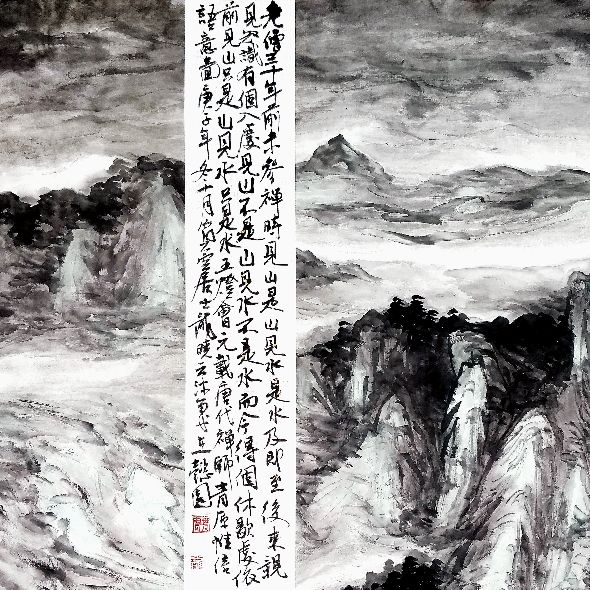 老僧三十年前未参禅時見山是山見水是水及即至後来親
見知識有個入處見山不是山見水不是水而今得個休歇處依
前見山只是山見水只是水五燈會元載唐代禅師青原惟信
語意畫庚子年冬十月雲居士龍曉云沐